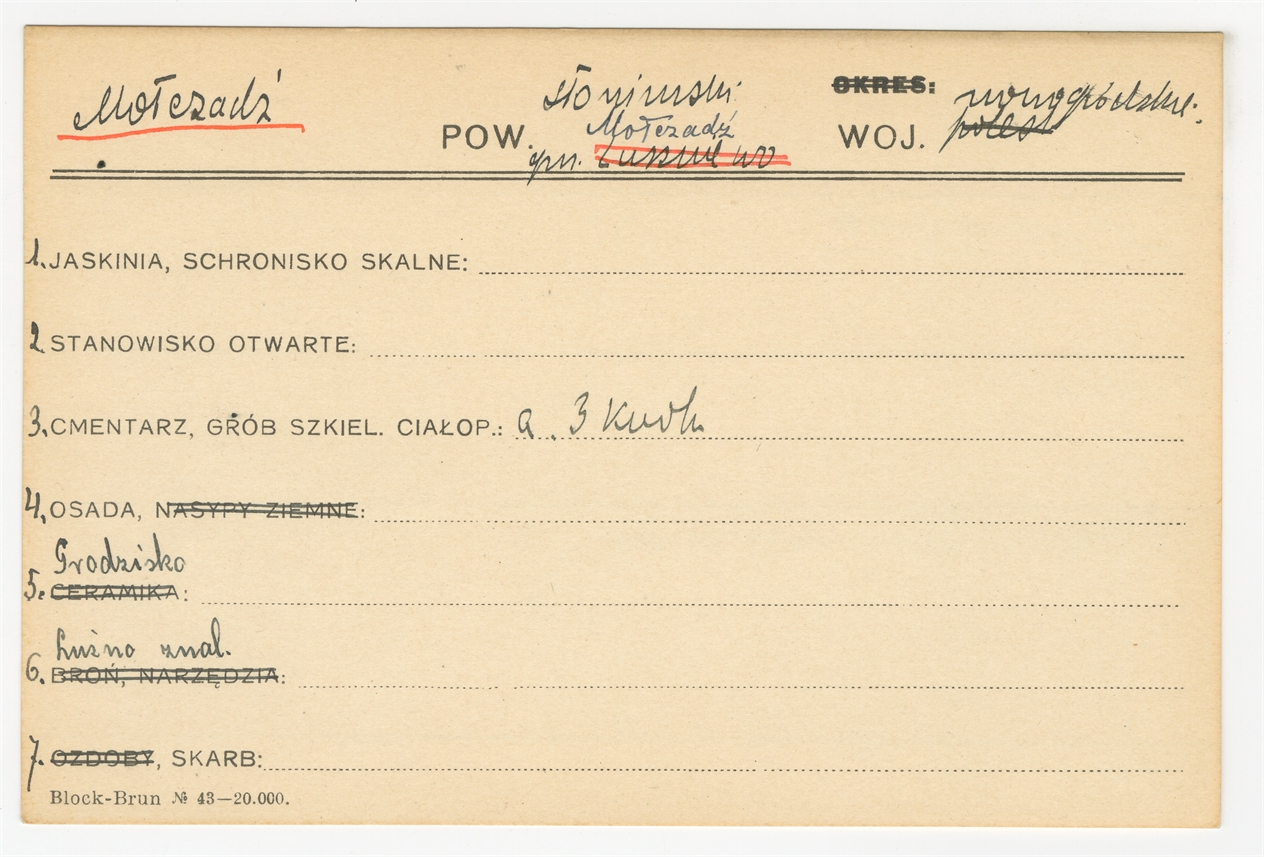 Mołczadź
słonimski
OKRES:
nowogródzkie.
POW.
Mołczadź
WOJ.
polesk
gm.
1. JASKINIA, SCHRONISKO SKALNE:
2. STANOWISKO OTWARTE:
3. CMENTARZ, GRÓB SZKIEL. CIAŁOP.: a. 3 Kurh
4. OSADA, NASYPY ZIEMNE:
Grodzisko
5. CERAMIKA:
Luźno znal.
6. BROŃ, NARZĘDZIA:
7. OZDOBY, SKARB:
Block-Brun № 43—20.000.